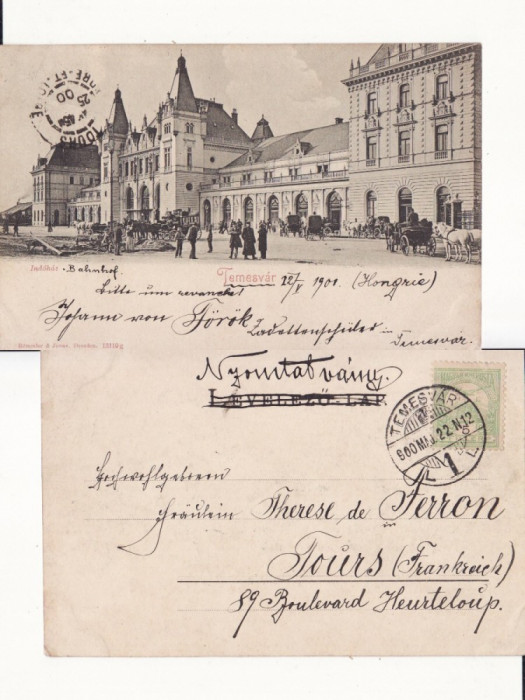 TOURS
25
00
INDRE-ET-LOIRE
Indóház - Bahnhof.
Temesvár 22/V 1901. (Hongrie)
Bitte um revanche!
Johann von Török
Cadettenschüler in
Temesvár.
Nyomtatvány.
LEVELEZŐ-LAP
TEMESVÁR
900 MÁJ 22 N.12
1
Hochwohlgeboren
Fräulein Therese de Ferron
in
Tours (Frankreich)
89 Boulevard Heurteloup.